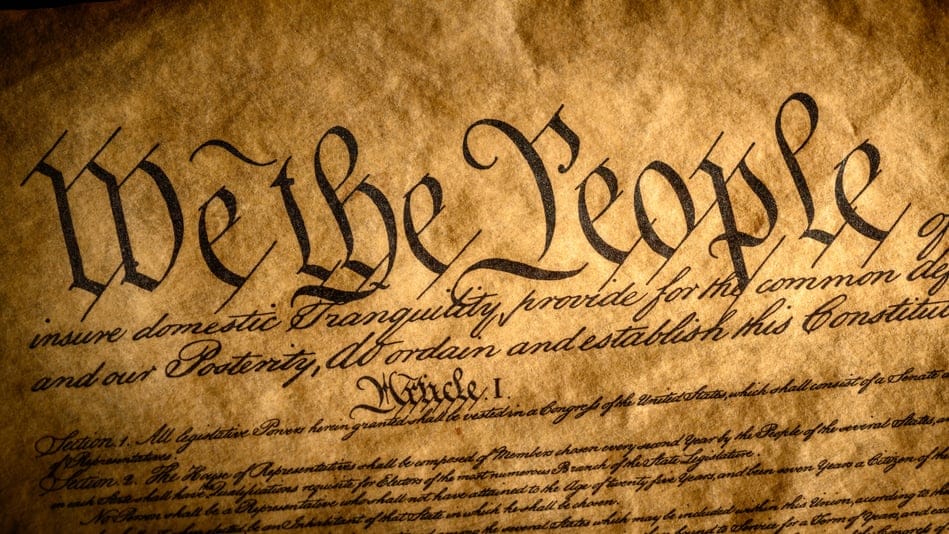 We the People
insure domestic Tranquility, provide for the common
and our Posterity, do ordain and establish this Constitu
Article. I.
Section. 1. All legislative Powers herein granted shall be vested in a Congress of the United States, which shall consist of a Senate
of Representatives.
Section. 2. The House of Representatives shall be composed of Members chosen every second Year by the People of the several States,
in each State shall have Qualifications requisite for Electors of the most numerous Branch of the State Legislature.
No Person shall be a Representative who shall not have attained to the Age of twenty five Years, and been seven Years a Citizen of the
be an Inhabitant of that State in which he shall be chosen.
among the several States which may be included within this Union, according to
bound to Service for a Term of Years, and